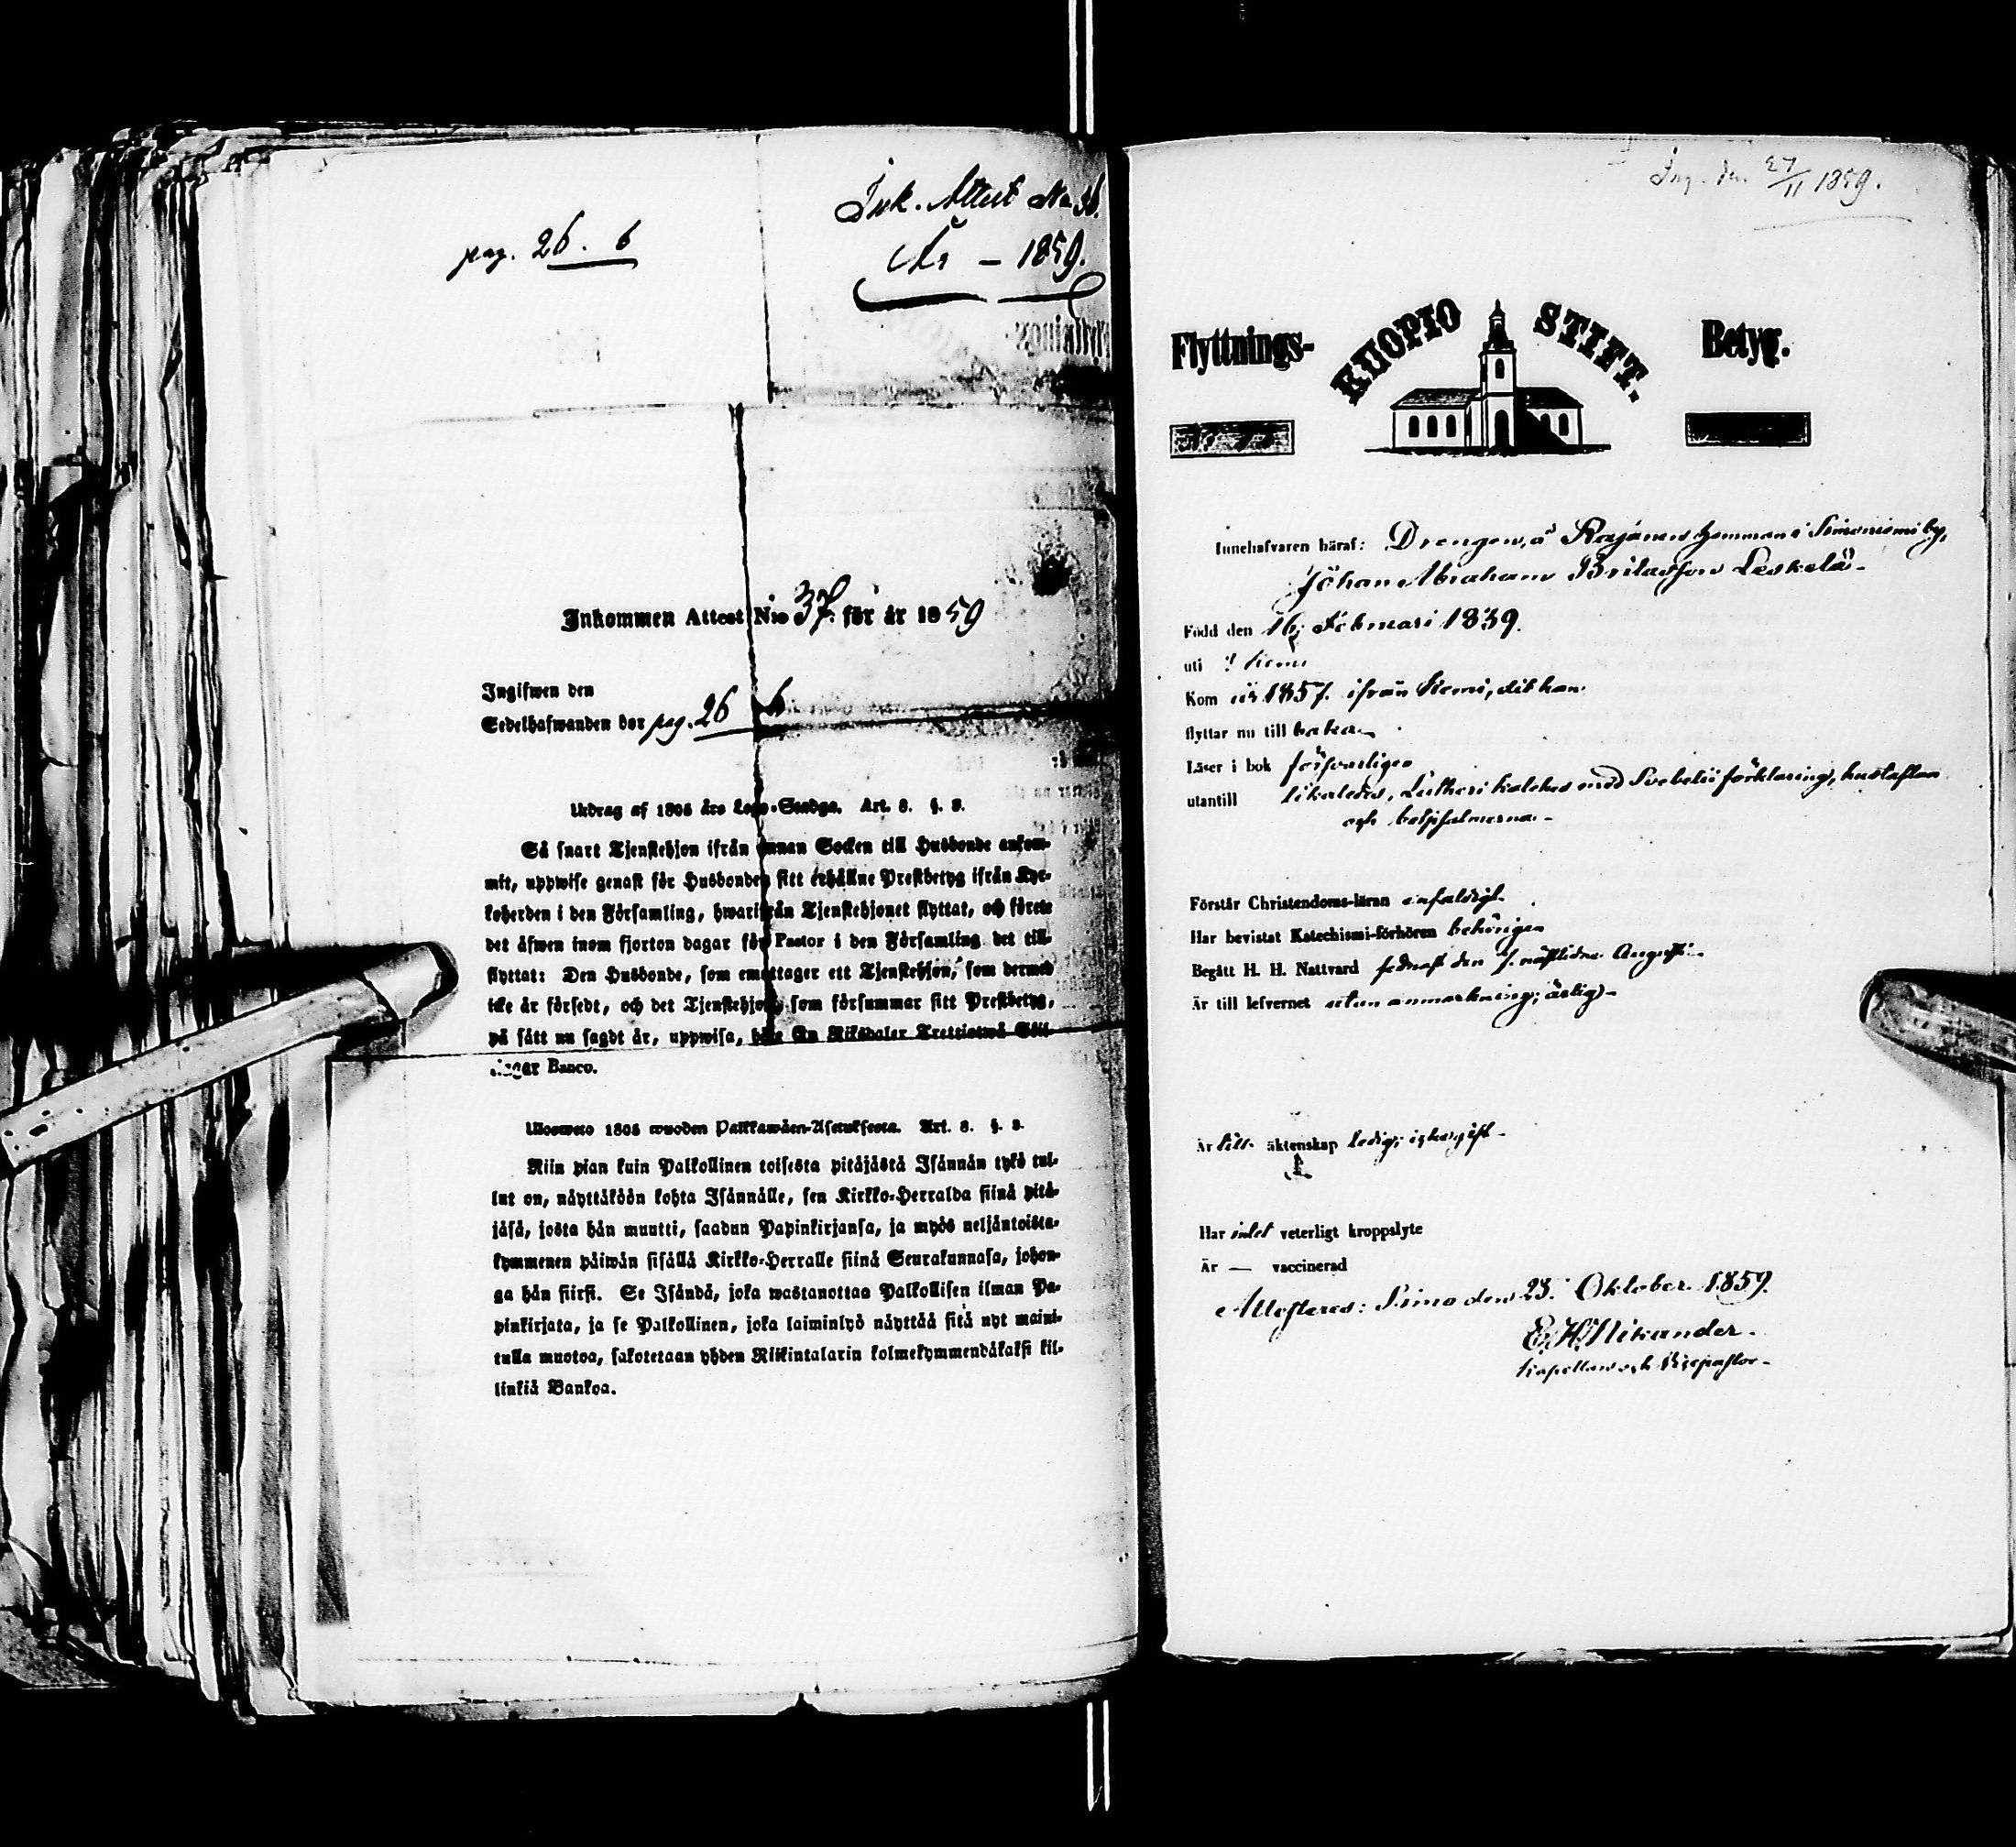 pag. 26. b
Ink. Attest No 36.
År - 1859.
Inkommen Attest N:o 37. för år 1859
Ingifwen den
Sedelhafwanden bor pag. 26 b
Utdrag af 1805 års Lego-Stadga. Art. 8. §. 3.
Så snart Tjenstehjon ifrån annan Socken till Husbonde ankom-
mit, uppwise genast för Husbonden sitt erhållne Prestbetyg ifrån Kyr-
koherden i den Församling, hwarifrån Tjenstehjonet flyttat, och förete
det äfwen inom fjorton dagar för Pastor i den Församling det till-
flyttat: Den Husbonde, som emottager ett Tjenstehjon, som dermed
icke är försedt, och det Tjenstehjon, som försummar sitt Prestbetyg,
på sätt nu sagdt är, uppwisa, böte En Riksdaler Trettiotwå Skil-
lingar Banco.
Uloswето 1805 wuoden Palkkawäen-Asetuksesta. Art. 8. §. 3.
Niin pian kuin Palkollinen toisesta pitäjästä Isännän tykö tul-
lut on, näyttäköön kohta Isännälle, sen Kirkko-Herralda siinä pitä-
jäsä, josta hän muutti, saadun Papinkirjansa, ja myös neljäntoista-
kymmenen päiwän sisällä Kirkko-Herralle siinä Seurakunnasa, johon-
ga hän siirsi. Se Isändä, joka wastanottaa Palkollisen ilman Pa-
pinkirjata, ja se Palkollinen, joka laiminlyö näyttää sitä nyt maini-
tulla muotoa, sakotetaan yhden Riikintalarin kolmekymmendäkaksi kil-
linkiä Bankoa.
Ing. den 27/11 1859.
Flyttnings- KUOPIO STIFT. Betyg.
Innehafvaren häraf: Drengen, å Rajanen hemman i Simoniemi by,
Johan Abraham Britasson Leskelä-
Född den 16 Februari 1839.
uti ? Kemi
Kom år 1857. ifrån Kemi, dit han
flyttar nu till baka.
Läser i bok försvarligen
utantill likaledes, Lutheri kateches med Svebelii förklaring, hustaflan
och botpsalmerna.-
Förstår Christendoms-läran enfaldigt.
Har bevistat Katechismi-förhören behörigen
Begått H. H. Nattvard sednast den 7. nästlidne Augusti-
Är till lefvernet utan anmärkning; ärlig-
Är till äktenskap ledig; icke gift-
Har intet veterligt kroppslyte
Är — vaccinerad
Attesteras: Simo den 23. Oktober 1859.
E. H. Nikander.
Kapellan och Vicepastor-